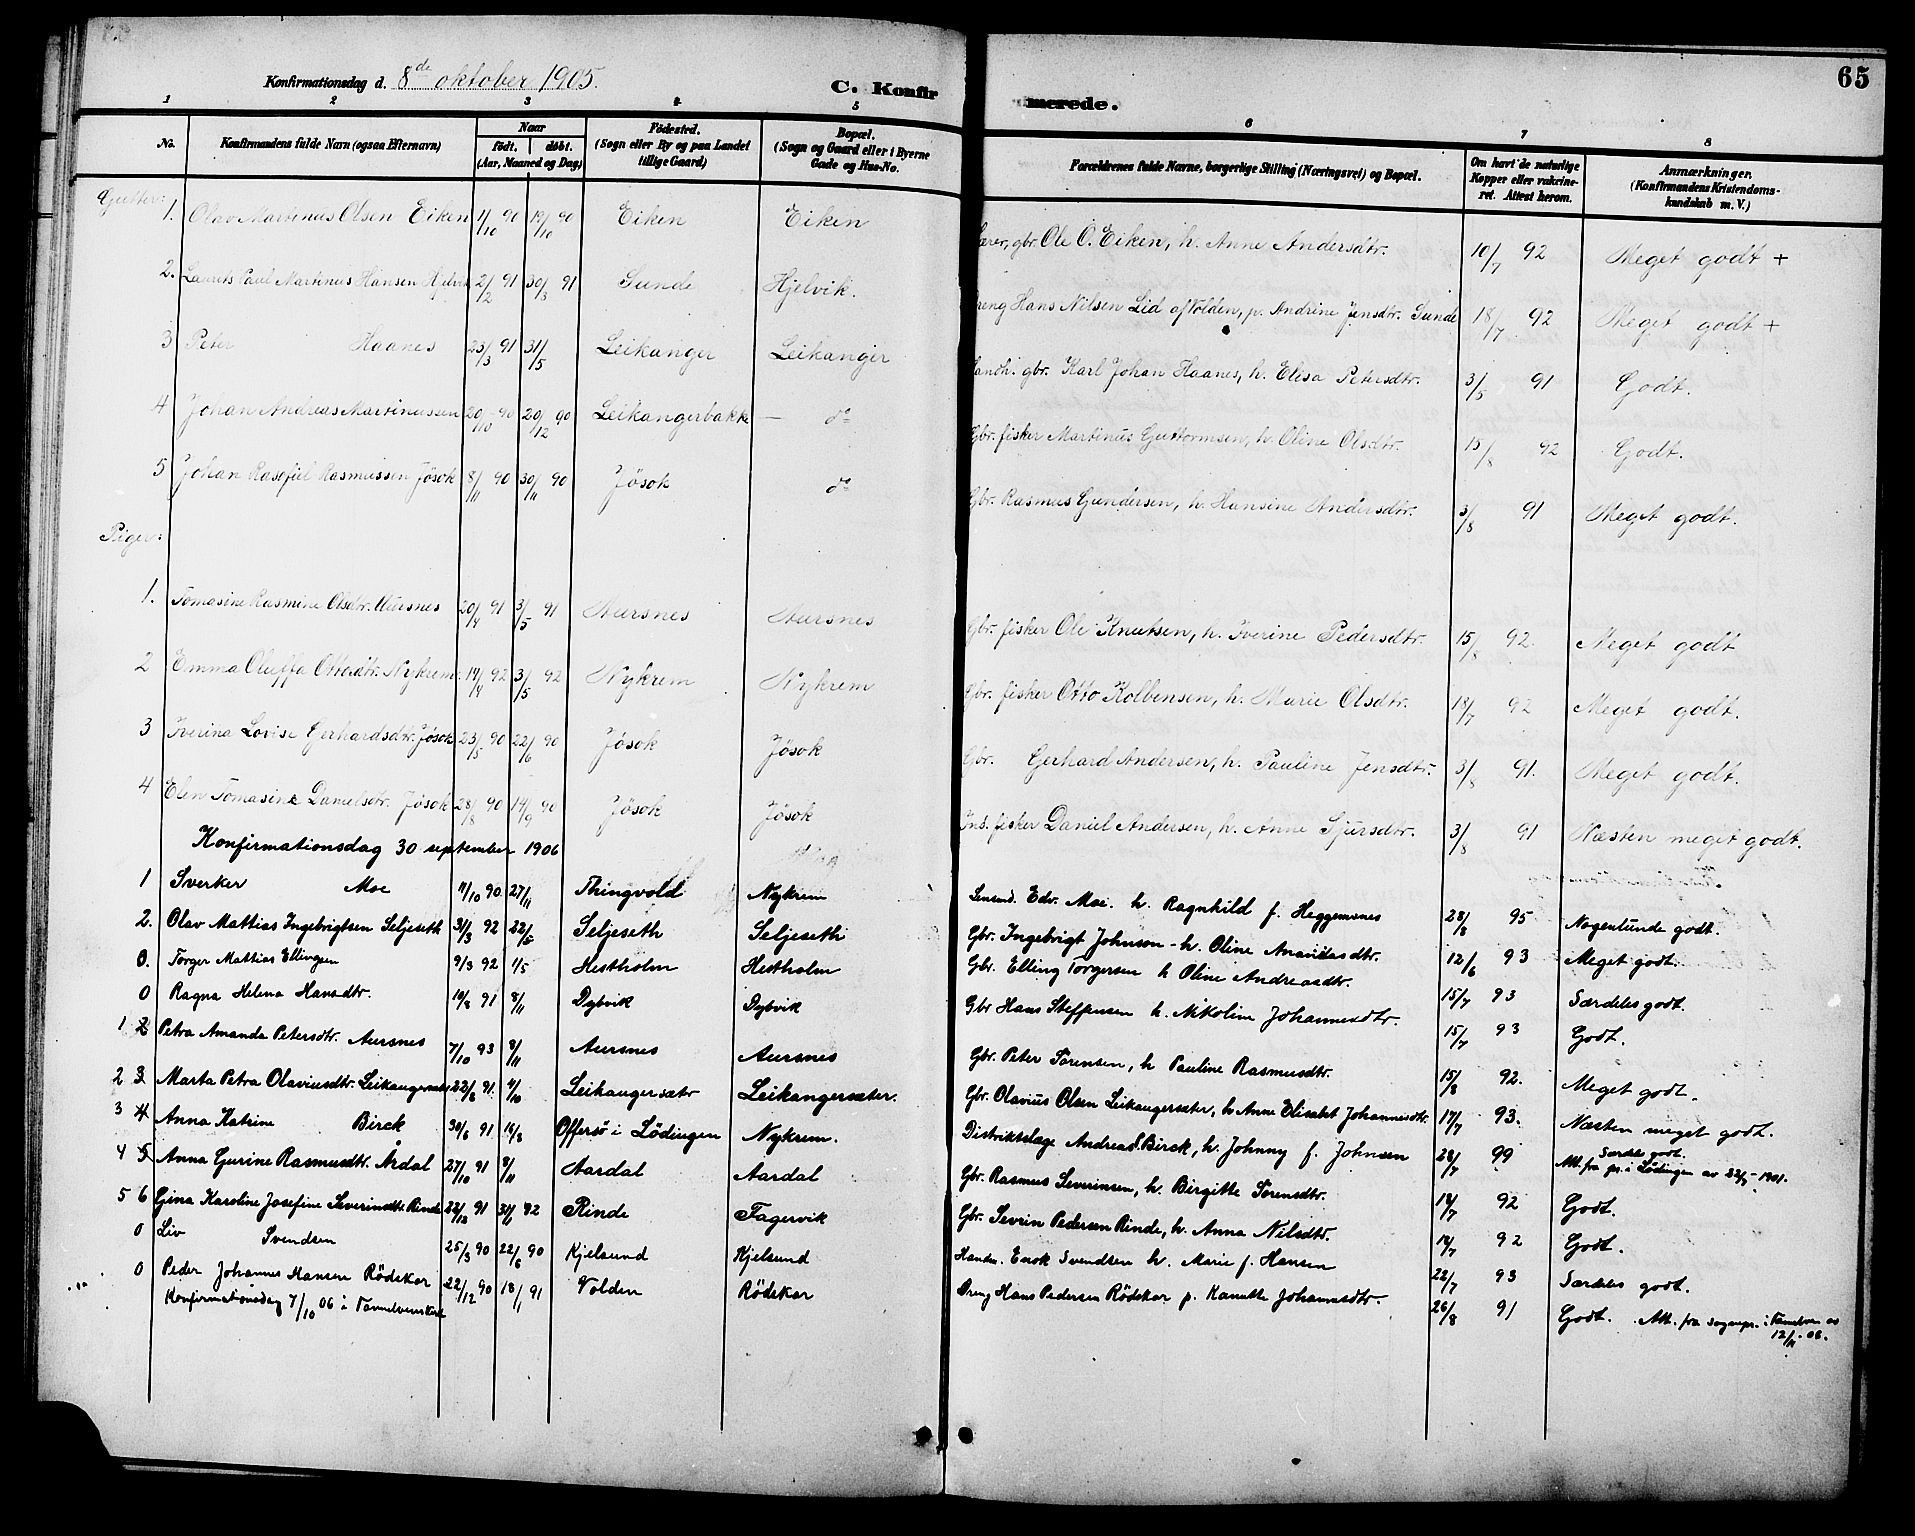 Konfirmationsdag d. 8de oktober 1905.
C. Konfirmerede.
65
1 2 3 4 5 6 7 8
No.
Konfirmandens fulde Navn (ogsaa Efternavn)
Naar
födt. döbt.
(Aar, Maaned og Dag)
Födested.
(Sogn eller By og paa Landet tillige Gaard)
Bopæl.
(Sogn og Gaard eller i Byerne Gade og Hus-No.
Forældrenes fulde Navne, borgerlige Stilling (Næringsvei) og Bopæl.
Om havt de naturlige Kopper eller vakcineret. Attest herom.
Anmærkninger.
(Konfirmandens Kristendomskundskab m. V.)
Gutter:
1. Olav Martinus Olsen Eiken 1/10 90 19/10 90 Eiken Eiken gbr. Ole O. Eiken, h. Anne Andersdtr. 10/7 92 Meget godt +
2. Laurits Paul Martinus Hansen Hjelvik 2/2 91 30/3 91 Sunde Hjelvik. Dreng Hans Nilsen Lid af Volden, p. Andrine Jensdtr. Sunde 18/7 92 Meget godt +
3 Peter Haanes 23/3 91 31/5 Leikanger Leikanger Handh. gbr. Karl Johan Haanes, h. Elisa Petersdtr. 3/5 91 Godt.
4 Johan Andreas Martinussen 20/10 90 20/12 90 Leikangerbakke — do Gbr. fisker Martinus Guttormsen, h. Oline Olsdtr. 15/8 92 Godt.
5 Johan Rasefiel Rasmussen Jösok 8/11 90 30/11 90 Jösok do Gbr. Rasmus Gundersen, h. Hansine Andersdtr. 3/8 91 Meget godt.
Piger:
1. Tomasine Rasmine Olsdtr. Aursnes 20/4 91 3/5 91 Aursnes Aursnes Gbr. fisker Ole Knutsen, h. Iverine Pedersdtr. 15/8 92. Meget godt
2 Emma Oluffa Ottosdtr. Nykrem 14/4 92 3/5 92 Nykrem Nykrem Gbr. fisker Otto Kolbensen, h. Marie Olsdtr. 18/7 92 Meget godt.
3 Iverina Lovise Gerhardsdtr. Jösok 23/5 90 22/6 90 Jösok Jösok Gbr. Gerhard Andersen, h. Pauline Jensdtr. 3/8 91. Meget godt.
4 Elen Tomasine Danielsdtr. Jösok 28/8 90 14/9 90 Jösok Jösok Ins. fisker Daniel Andersen, h. Anne Sjursdtr. 3/8 91 Næsten meget godt.
Konfirmationsdag 30 september 1906
1 Sverker Moe 11/10 90 27/11 Thingvold Nykrem Lensmd. Edv. Moe. h. Ragnhild f. Heggemsnes 28/8 95 Nogenlunde godt.
2. Olav Mattias Ingebrigtsen Seljeseth 31/3 92 22/5 Seljeseth Seljeseth Gbr. Ingebrigt Johnson - h. Oline Ananiasdtr. 12/6 93 Meget godt.
0. Torger Mattias Ellingsen 9/3 92 1/5 Hestholm Hestholm Gbr. Elling Torgersen h Oline Andreasdtr. 15/7 93 Særdeles godt.
0 Ragna Helena Hansdtr. 10/8 91 8/11 Dybvik Dybvik Gbr Hans Steffensen h. Nikoline Johannesdtr. 15/7 93 Godt.
1 2 Petra Amanda Petersdtr. Aursnes 7/10 93 8/11 Aursnes Aursnes Gbr. Peter Sørensen, h Pauline Rasmusdtr. 15/8 92. Meget godt.
2 3. Marta Petra Olaviusdtr. Leikangersæter 22/8 91. 4/10 Leikangersætr Leikangersæter. Gbr. Olavius Olsen Leikangersæter, h Anne Elisabet Johannesdtr. 17/7 93. Næsten meget godt.
3 4 Anna Katrine Birck 30/6 91 16/8 Offersø i Lödingen Nykrem. Distriktslæge Andreas S. Birck, h. Johnny f. Johnsen 28/7 99 Særdeles godt. Att. fra pr. i Lödingen av 22/5 - 1901.
4 5 Anna Gurine Rasmusdtr. Årdal 27/10 91 8/11 Aardal Aardal Gbr. Rasmus Severinsen, h. Birgitte Sørensdtr. 14/7 92 Godt.
5 6 Gina Karoline Josefine Severinsdtr. Rinde 22/12 91 31/1 92 Rinde Fagervik Gbr. Sevrin Pedersen Rinde, h. Anna Nilsdtr. 14/7 92 Godt.
0 Liv Svendsen 25/3 90 22/6 90 Kjelsund Kjelsund Handm. Enok Svendsen h. Marie f. Hansen 22/7 93 Særdeles godt.
0 Peder Johannes Hansen Rödskar 22/12 90 18/1 91 Volden Rödskar Dreng Hans Pedersen Rödskar p. Hanette Johannesdtr. 26/8 91 Godt. Att. fra sognepr. i Vanelven av 12/11 - 06.
Konfirmationsdag 7/10 06 i Vannelvens kirke